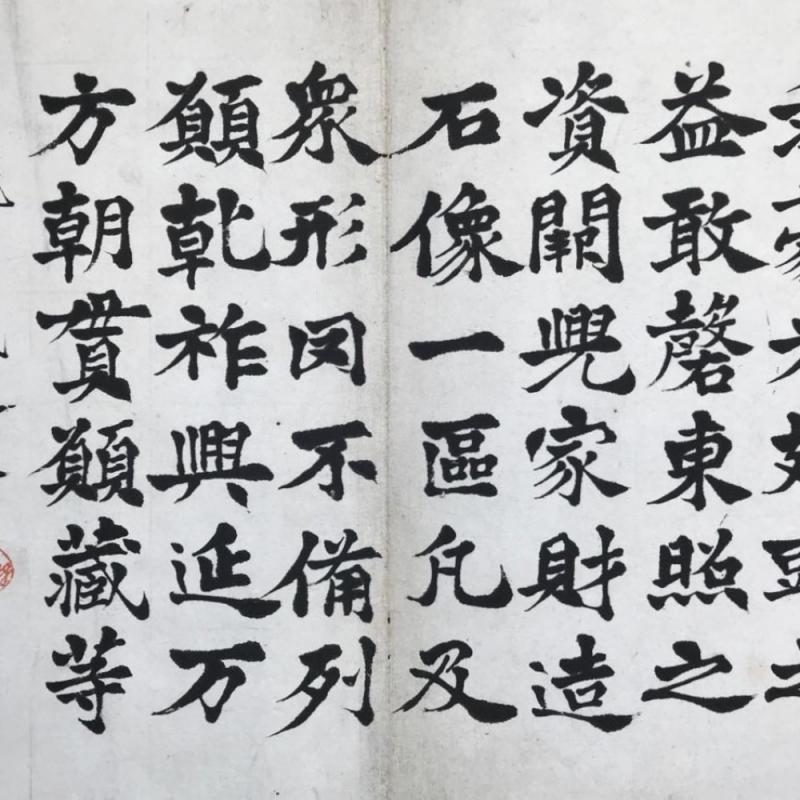 益敢磬東照之
資闕兜家財造
石像一區凡及
衆形罔不備列
願乾祚興延万
方朝貫願藏等